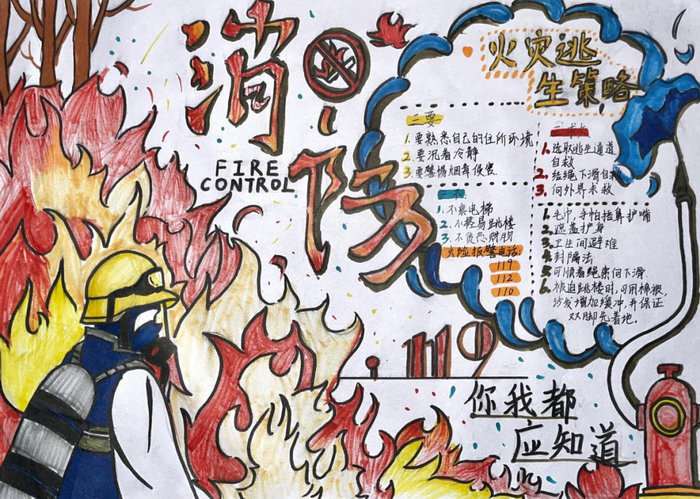 消防
FIRE
CONTROL
火灾逃
生策略
二要
1. 要熟悉自己的住所环境
2. 要沉着冷静
3. 要警惕烟毒侵害
1. 不乘电梯
2. 不轻易跳楼
3. 不贪恋财物
火险报警电话
119
112
110
1. 选取逃生通道
自救
2. 结绳下滑自救
3. 向外界求救
1. 毛巾、手帕捂鼻护嘴
2. 遮盖护身
3. 卫生间避难
4. 封隔法
5. 可顺着绳索向下滑
6. 被迫跳楼时，可用棉被、
沙发增加缓冲，并保证
双脚先着地。
119
你我都
应知道